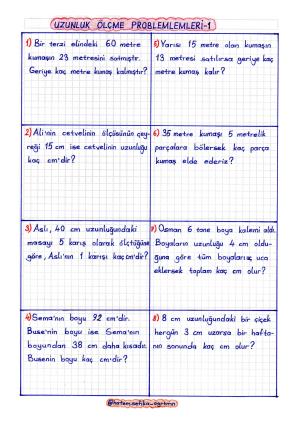 UZUNLUK ÖLÇME PROBLEMLEMLERİ-1
1) Bir terzi elindeki 60 metre
kumaşın 23 metresini satmıştır.
Geriye kaç metre kumaş kalmıştır?
5) Yarısı 15 metre olan kumaşın
13 metresi satılırsa geriye kaç
metre kumaş kalır?
2) Ali'nin cetvelinin ölçüsünün çey-
reği 15 cm ise cetvelinin uzunluğu
kaç cm'dir?
6) 35 metre kumaşı 5 metrelik
parçalara bölersek kaç parça
kumaş elde ederiz?
3) Aslı, 40 cm uzunluğundaki
masayı 5 karış olarak ölçtüğüne
göre, Aslı'nın 1 karışı kaç cm'dir?
7) Osman 6 tane boya kalemi aldı.
Boyaların uzunluğu 4 cm oldu-
ğuna göre tüm boyaları uç uca
eklersek toplam kaç cm olur?
4) Sema'nın boyu 92 cm'dir.
Buse'nin boyu ise Sema'nın
boyundan 38 cm daha kısadır.
Busenin boyu kaç cm'dir?
8) 8 cm uzunluğundaki bir çiçek
hergün 3 cm uzarsa bir hafta-
nın sonunda kaç cm olur?